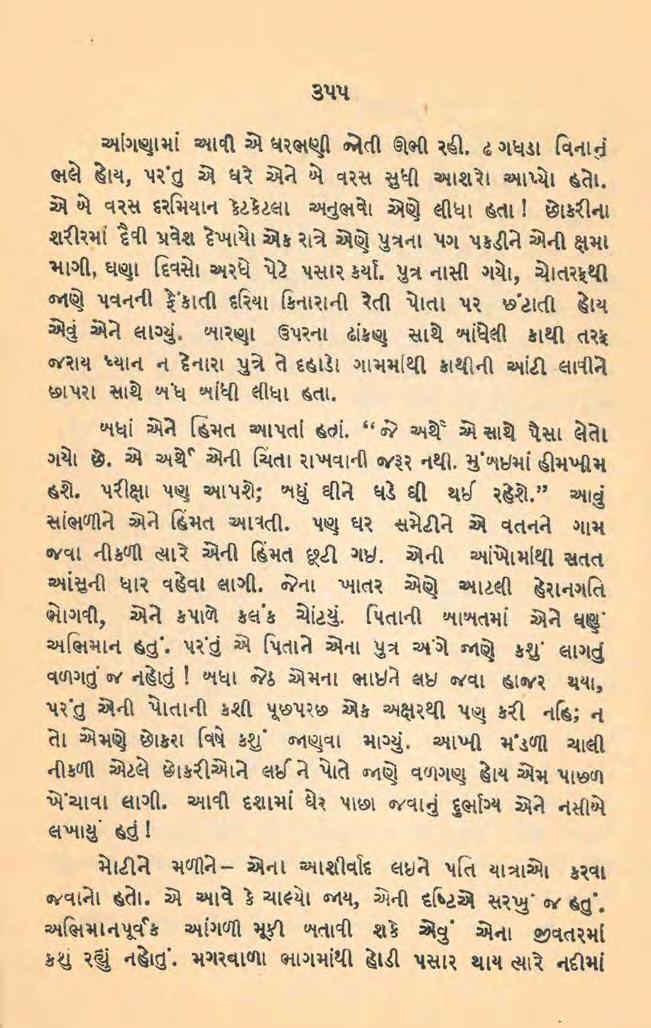 ૩૫૫
આંગણામાં આવી એ ઘરભણી જોતી ઊભી રહી. ઢંગધડા વિનાનું
ભલે હોય, પરંતુ એ ઘરે એને બે વરસ સુધી આશરો આપ્યો હતો.
એ બે વરસ દરમિયાન કેટકેટલા અનુભવો એણે લીધા હતા ! છોકરીના
શરીરમાં દૈવી પ્રવેશ દેખાયો એક રાત્રે એણે પુત્રના પગ પકડીને એની ક્ષમા
માગી, ઘણા દિવસો અરધે પેટે પસાર કર્યા. પુત્ર નાસી ગયો, ચોતરફથી
જાણે પવનની ફેંકાતી દરિયા કિનારાની રેતી પોતા પર છંટાતી હોય
એવું એને લાગ્યું. બારણા ઉપરના ઢાંકણ સાથે બાંધેલી કાથી તરફ
જરાય ધ્યાન ન દેનારા પુત્રે તે દહાડો ગામમાંથી કાથીની આંટી લાવીને
છાપરા સાથે બંધ બાંધી લીધા હતા.
બધાં એને હિંમત આપતાં હતાં. “જે અર્થે એ સાથે પૈસા લેતો
ગયો છે. એ અર્થે એની ચિંતા રાખવાની જરૂર નથી. મુંબઇમાં હીમખીમ
હશે. પરીક્ષા પણ આપશે; બધું ઘીને ઘડે ઘી થઈ રહેશે.” આવું
સાંભળીને એને હિંમત આવતી. પણ ઘર સમેટીને એ વતનને ગામ
જવા નીકળી ત્યારે એની હિંમત છૂટી ગઇ. એની આંખોમાંથી સતત
આંસુની ધાર વહેવા લાગી. જેના ખાતર એણે આટલી હેરાનગતિ
ભોગવી, એને કપાળે કલંક ચોંટયું. પિતાની બાબતમાં એને ઘણું
અભિમાન હતું. પરંતું એ પિતાને એના પુત્ર અંગે જાણે કશું લાગતું
વળગતું જ નહોતું ! બધા જેઠ એમના ભાઇને લઇ જવા હાજર થયા,
પરંતુ એની પોતાની કશી પૂછપરછ એક અક્ષરથી પણ કરી નહિ; ન
તો એમણે છોકરા વિષે કશું જાણવા માગ્યું. આખી મંડળી ચાલી
નીકળી એટલે છોકરીઓને લઈ ને પોતે જાણે વળગણ હોય એમ પાછળ
ખેંચાવા લાગી. આવી દશામાં ઘેર પાછા જવાનું દુર્ભાગ્ય એને નસીબે
લખાયું હતું !
મોટીને મળીને– એના આશીર્વાદ લઇને પતિ યાત્રાઓ કરવા
જવાનો હતો. એ આવે કે ચાલ્યો જાય, એની દષ્ટિએ સરખું જ હતું.
અભિમાનપૂર્વક આંગળી મૂકી બતાવી શકે એવું એના જીવતરમાં
કશું રહ્યું નહોતું. મગરવાળા ભાગમાંથી હોડી પસાર થાય ત્યારે નદીમાં